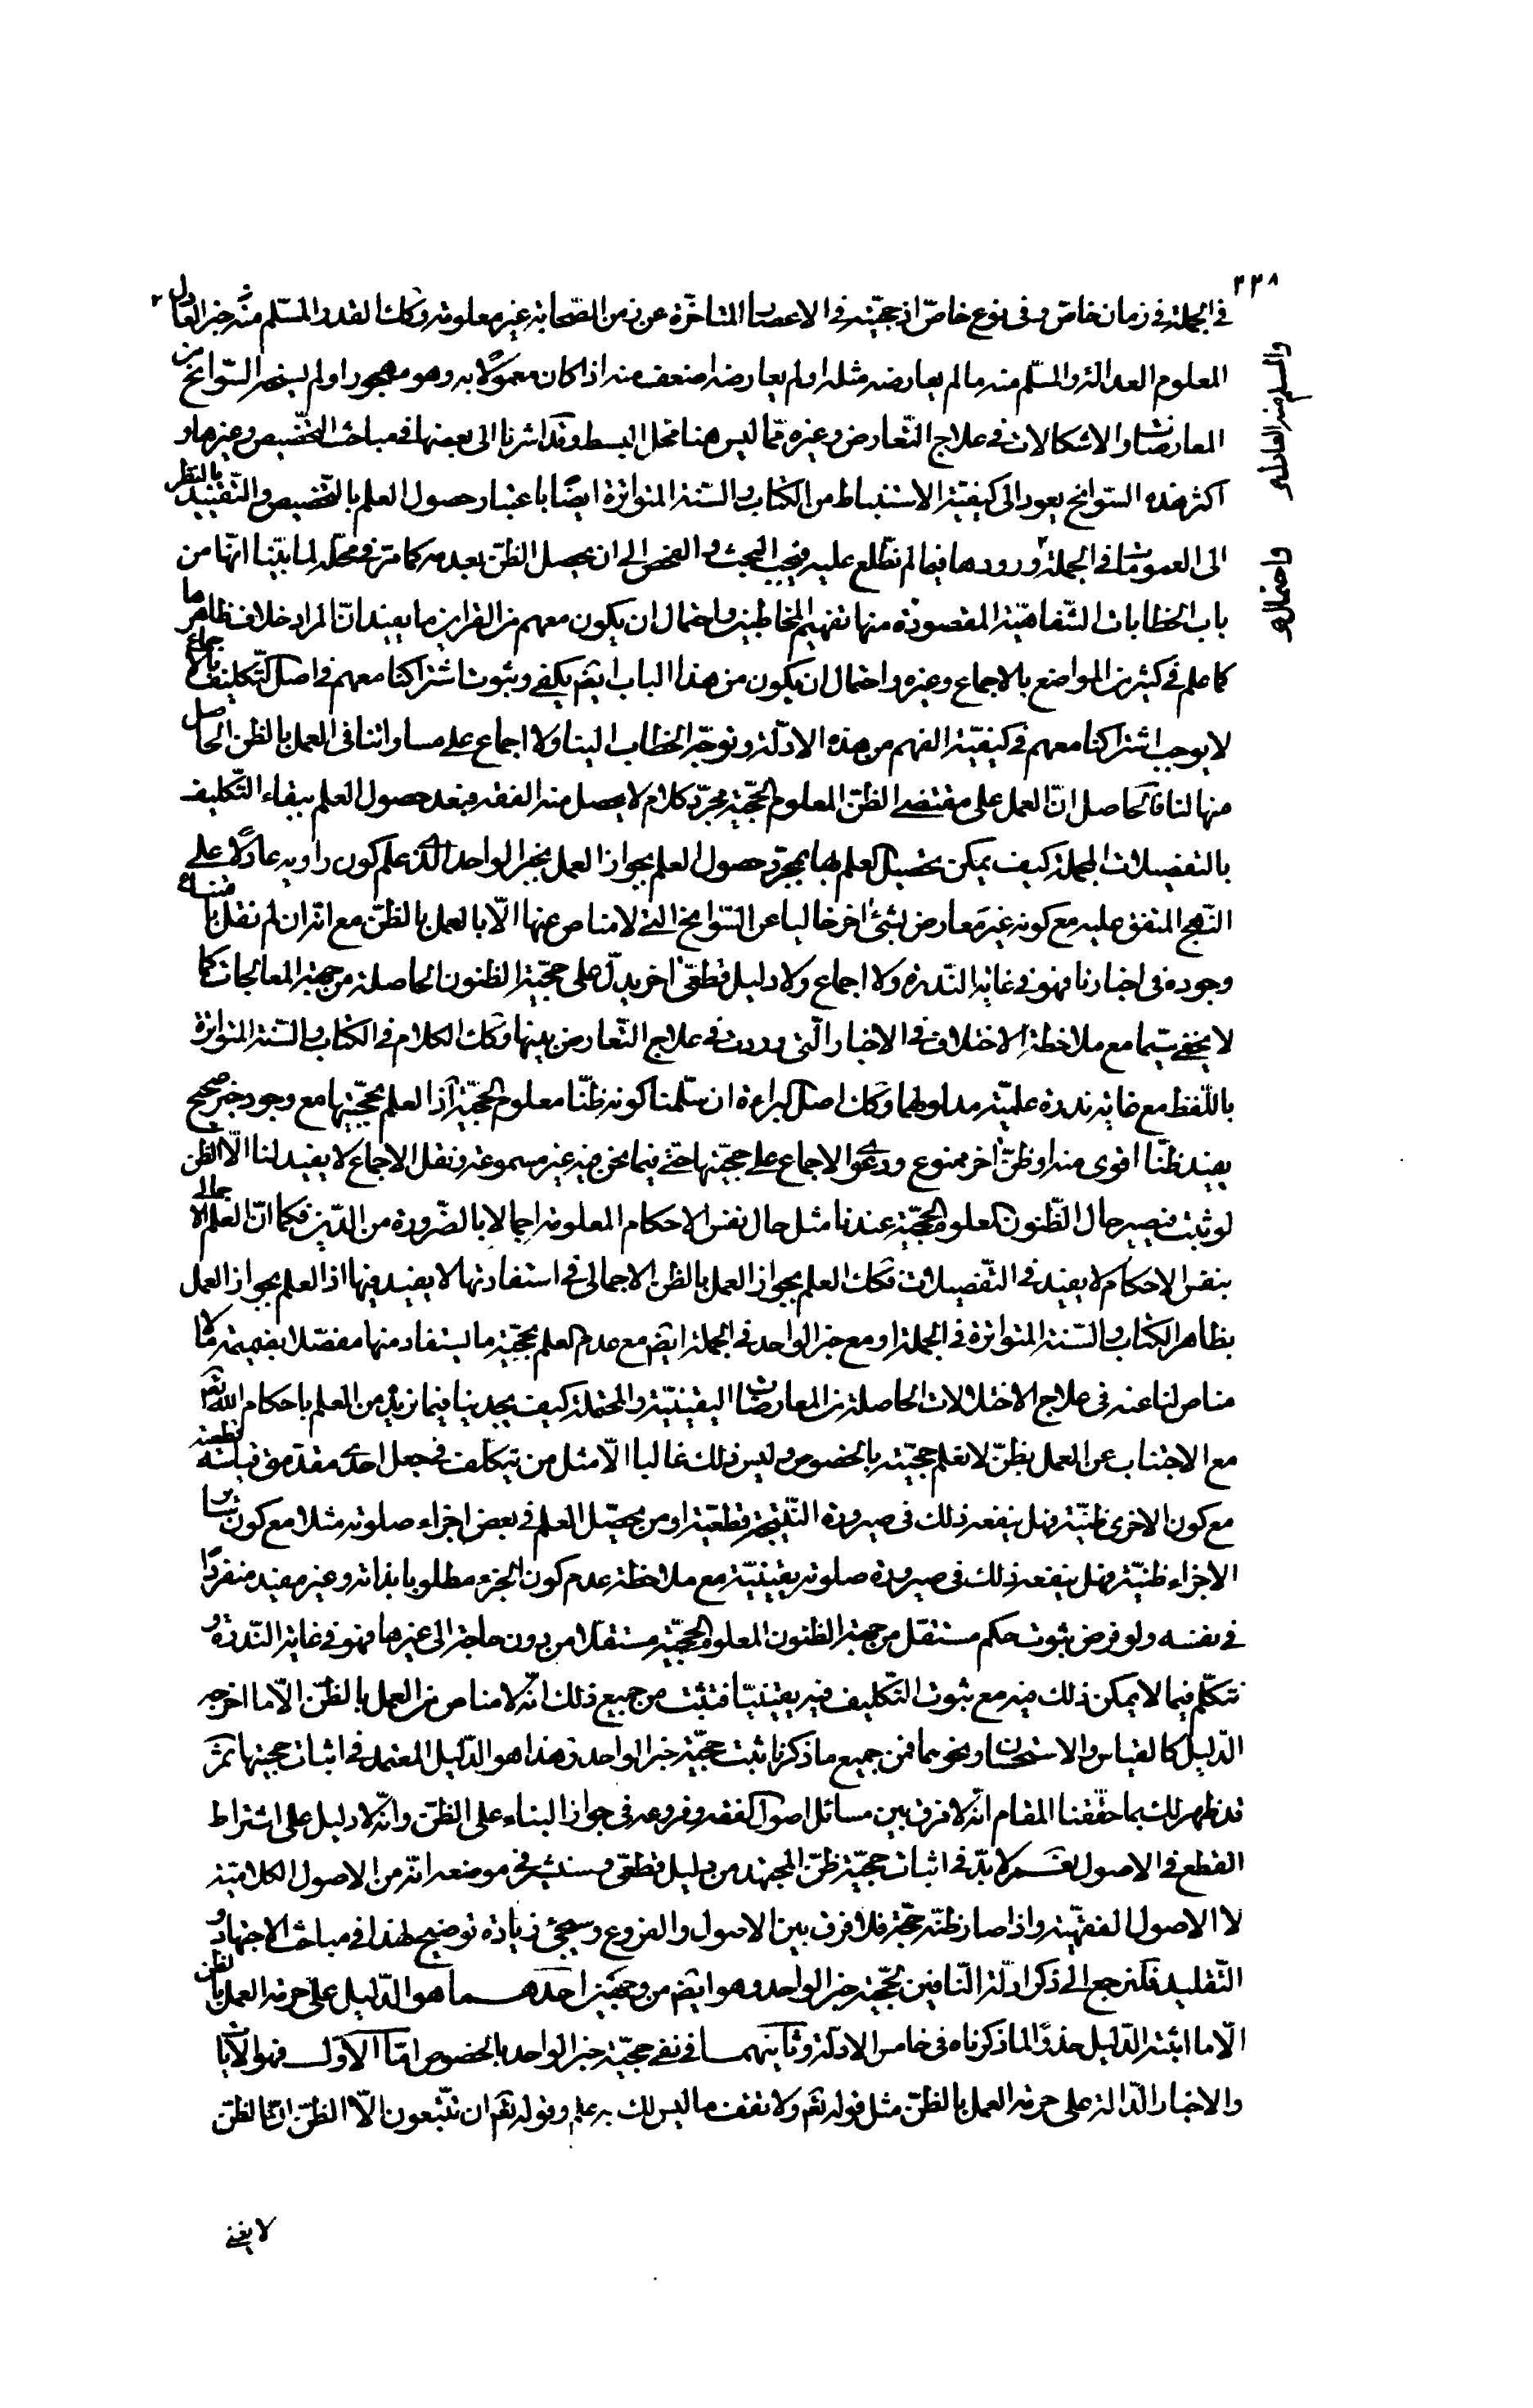 ٢٣٨
في الجملة في زمان خاصّ وفى نوع خاصّ اذ حجيّته في الاعصار المتاخّرة عن زمن الصّحابة غير معلومة وكك القدر المسلّم منه خبر العادل
المعلوم العدالة والمسلّم منه ما لم يعارضه مثله او لم يعارضه اضعف منه اذا كان معمولًا به وهو مهجورا ولم يسنح السّوانح من
المعارضات والاشكالات في علاج التّعارض وغيره ممّا ليس هنا محل البسط وقد اشرنا الى بعضها في مباحث التخصيص وغيرها و
اكثر هذه السّوانح يعود الى كيفيّة الاستنباط من الكتاب والسّنة المتواترة ايضًا باعتبار حصول العلم بالتخصيص والتّقييد بالنظر
الى العمومات في الجملة وورودها فيما لم نطّلع عليه فيجب البحث والفحص الى ان يحصل الظنّ بعدمه كما مرّ في محلّه لما بيّنا انّها من
باب الخطابات الشّفاهيّة المقصودة منها تفهيم المخاطبين واحتمال ان يكون معهم من القراين ما يفيد انّ المراد خلاف ظاهرها
كما علم في كثير من المواضع بالاجماع وغيره واحتمال ان يكون من هذا الباب ايضم يكفي وثبوت اشتراكنا معهم في اصل التّكليف بالاجماع
لا يوجب اشتراكنا معهم في كيفيّة الفهم من هذه الادلّة وتوجّه الخطاب الينا ولا اجماع على مساواتنا في العمل بالظن الحاصل
منها لنا فالحاصل انّ العمل على مقتضى الظنّ المعلوم الحجّية مجرّد كلام لا يحصل منه الفقه فبعد حصول العلم ببقاء التّكليف
بالتفصيلات المجملة كيف يمكن تحصيل العلم بها بمجرّد حصول العلم بجواز العمل بخبر الواحد الّذى علم كون راويه عادلًا على
النّهج المتفق عليه مع كونه غير معارض بشئ اخر خاليا عن السّوانح التي لا مناص عنها الّا بالعمل بالظنّ مع انّه ان لم نقل بامتناع
وجوده في اخبارنا فهو في غاية النّدرة ولا اجماع ولا دليل قطعىّ اخر يدلّ على حجيّة الظنون الحاصلة من جهة المعالجات كما
لا يخفى سيّما مع ملاحظة الاختلاف في الاخبار الّتى وردت في علاج التّعارض بينها وكك الكلام في الكتاب والسّنة المتواترة
باللّفظ مع غاية ندرة علميّة مداولها وكك اصل البراءة ان سلّمنا كونه ظنّا معلوم الحجّية اذ العلم بحجّيتها مع وجود خبر صحيح
يفيد ظنّا اقوى منه او ظنّ اخر ممنوع ودعوى الاجماع على حجّيتها حتّى فيما نحن فيه غير مسموعة ونقل الاجماع لا يفيد لنا الّا الظن
لو ثبت فيصير حال الظّنون المعلومة الحجّية عندنا مثل حال نفس الاحكام المعلومة اجمالا بالضّرورة من الدّين فكما انّ العلم الاجمالي
بنفس الاحكام لا يفيد في التّفصيلات فكك العلم بجواز العمل بالظن الاجمالى في استفادتها لا يفيد فيها اذ العلم بجواز العمل
بظاهر الكتاب والسّنة المتواترة في الجملة او مع خبر الواحد في الجملة ايضم مع عدم العلم بحجّية ما يستفاد منها مفصّلا بضميمة ما لا
مناص لنا عنه في علاج الاختلالات الحاصلة من المعارضات اليقينيّة والمحتملة كيف يجدينا فيما نريد من العلم باحكام الله تعم
مع الاجتناب عن العمل بظنّ لا نعلم حجيّته بالخصوص وليس ذلك غالبا الّا مثل من يتكلّف في جعل احدى مقدّمتى قياسه قطعية
مع كون الاخرى ظنّيّة فهل ينفعه ذلك في صيرورة النّتيجة قطعيّة او من يحصّل العلم في بعض اجزاء صلوته مثلا مع كون ساير
الاجزاء ظنيّة فهل ينفعه ذلك في صيرورة صلوته يقينيّة مع ملاحظة عدم كون الجزء مطلوبا بذاته وغير مفيد منفردًا
في نفسه ولو فرض ثبوت حكم مستقل من جهة الظنون المعلومة الحجّية مستقلا من دون حاجة الى غيرها فهو في غاية النّدرة و
نتكلّم فيما لا يمكن ذلك فيه مع ثبوت التّكليف فيه يقينيّا فثبت من جميع ذلك انّه لا مناص من العمل بالظنّ الّا ما اخرجه
الدّليل كالقياس والاستحسان ونحوهما فمن جميع ما ذكرنا ثبت حجّية خبر الواحد وهذا هو الدّليل المعتمد في اثبات حجيتها ثمّ
قد ظهر لك بما حقّقنا المقام انّه لا فرق بين مسائل اصول الفقه وفروعه في جواز البناء على الظنّ وانّه لا دليل على اشتراط
القطع في الاصول نعم لا بدّ في اثبات حجّية ظنّ المجتهد من دليل قطعى وسنثبت في موضعه انّه من الاصول الكلاميّة
لا الاصول الفقهيّة واذا صار ظنّه حجّة فلا فرق بين الاصول والفروع وسيجئ زيادة توضيح لهذا في مباحث الاجتهاد و
التّقليد فلنرجع الى ذكر ادلّة النّافين لحجّية خبر الواحد وهو ايضم من وجهين احدهما هو الدّليل على حرمة العمل بالظن
الّا ما اثبته الدّليل حذوًا لما ذكرناه في خامس الادلّة وثانيهما في نفى حجيّة خبر الواحد بالخصوص امّا الاوّل فهو الايات
والاخبار الدّالة على حرمة العمل بالظنّ مثل قوله تعم ولا تقف ما ليس لك به علم وقوله تعم ان تتّبعون الّا الظنّ انّ الظنّ
لا يغنى
والمسلم منه العادل
واحتمال